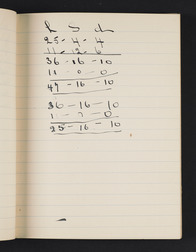 L S d
25 - 4 - 4
11 - 12 - 6
36 - 16 - 10
11 - 0 - 0
47 - 16 - 10
36 - 16 - 10
25 - 16 - 10